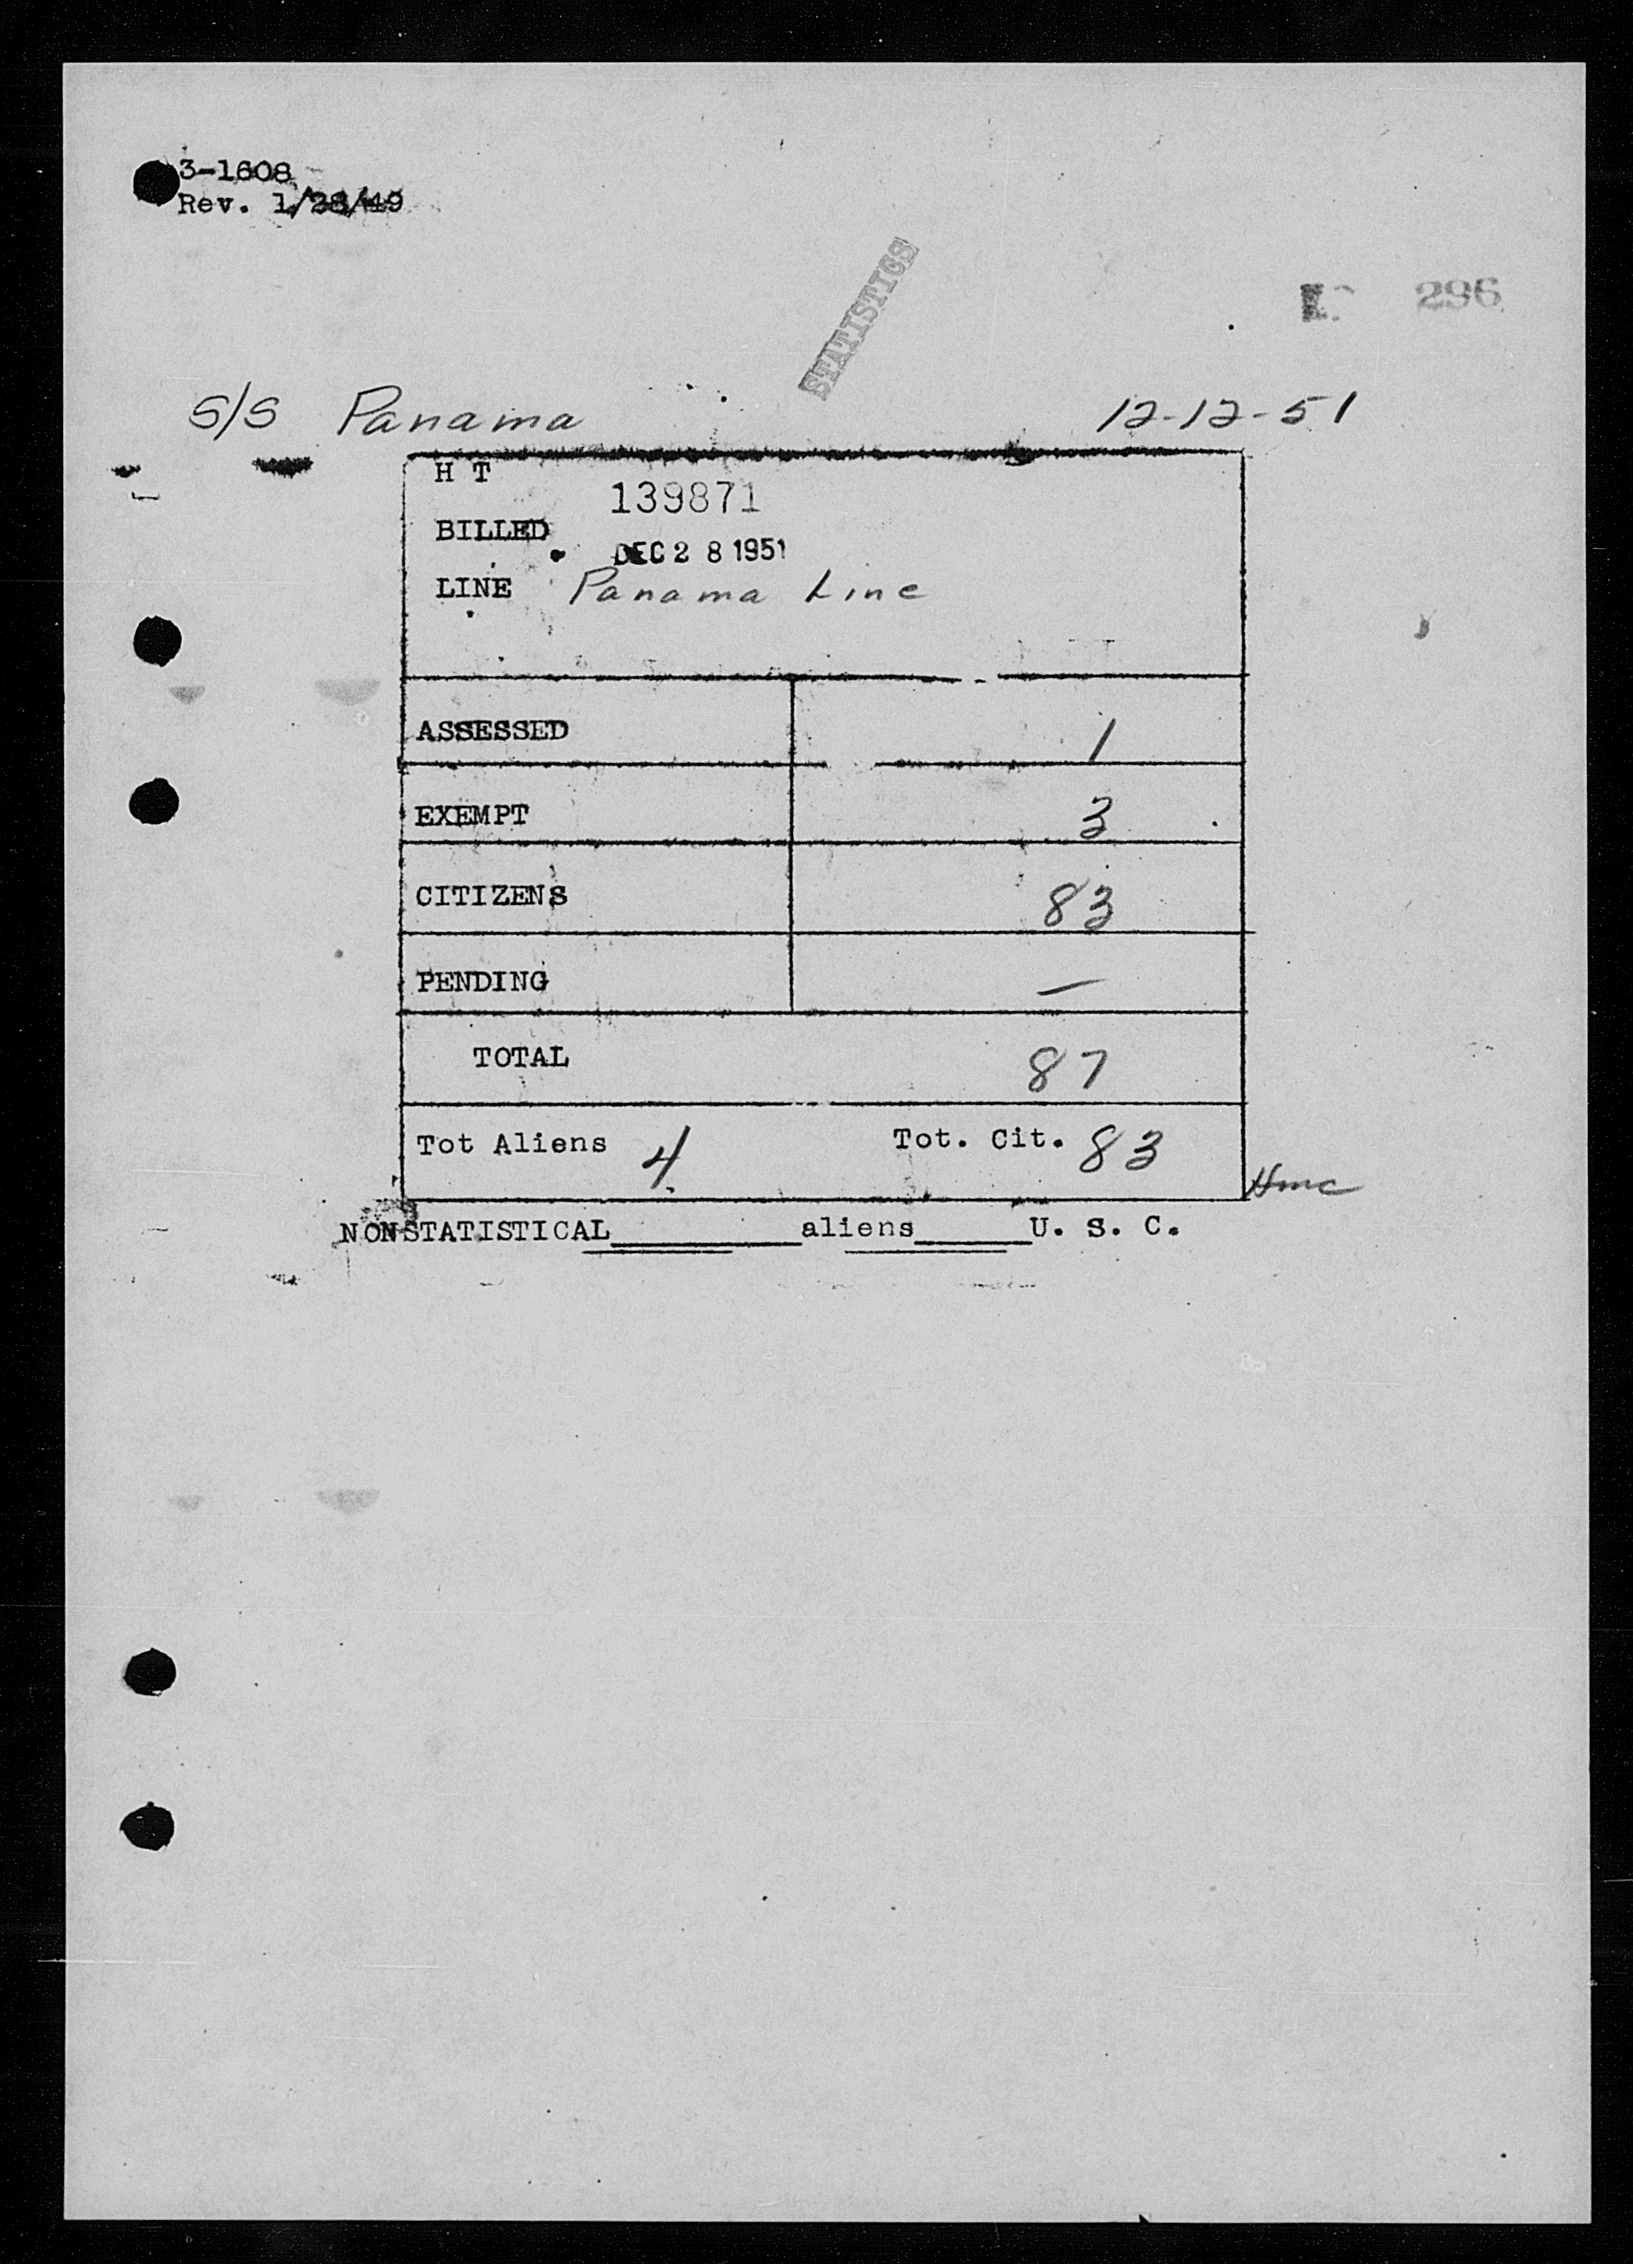 3-1608
Rev. 1/28/49
STATISTICS
296
S/S Panama 12-12-51
H T
139871
BILLED
DEC 28 1951
LINE Panama Line
ASSESSED 1
EXEMPT 3
CITIZENS 83
PENDING —
TOTAL 87
Tot Aliens 4 Tot. Cit. 83
Hmc
NONSTATISTICAL aliens U. S. C.